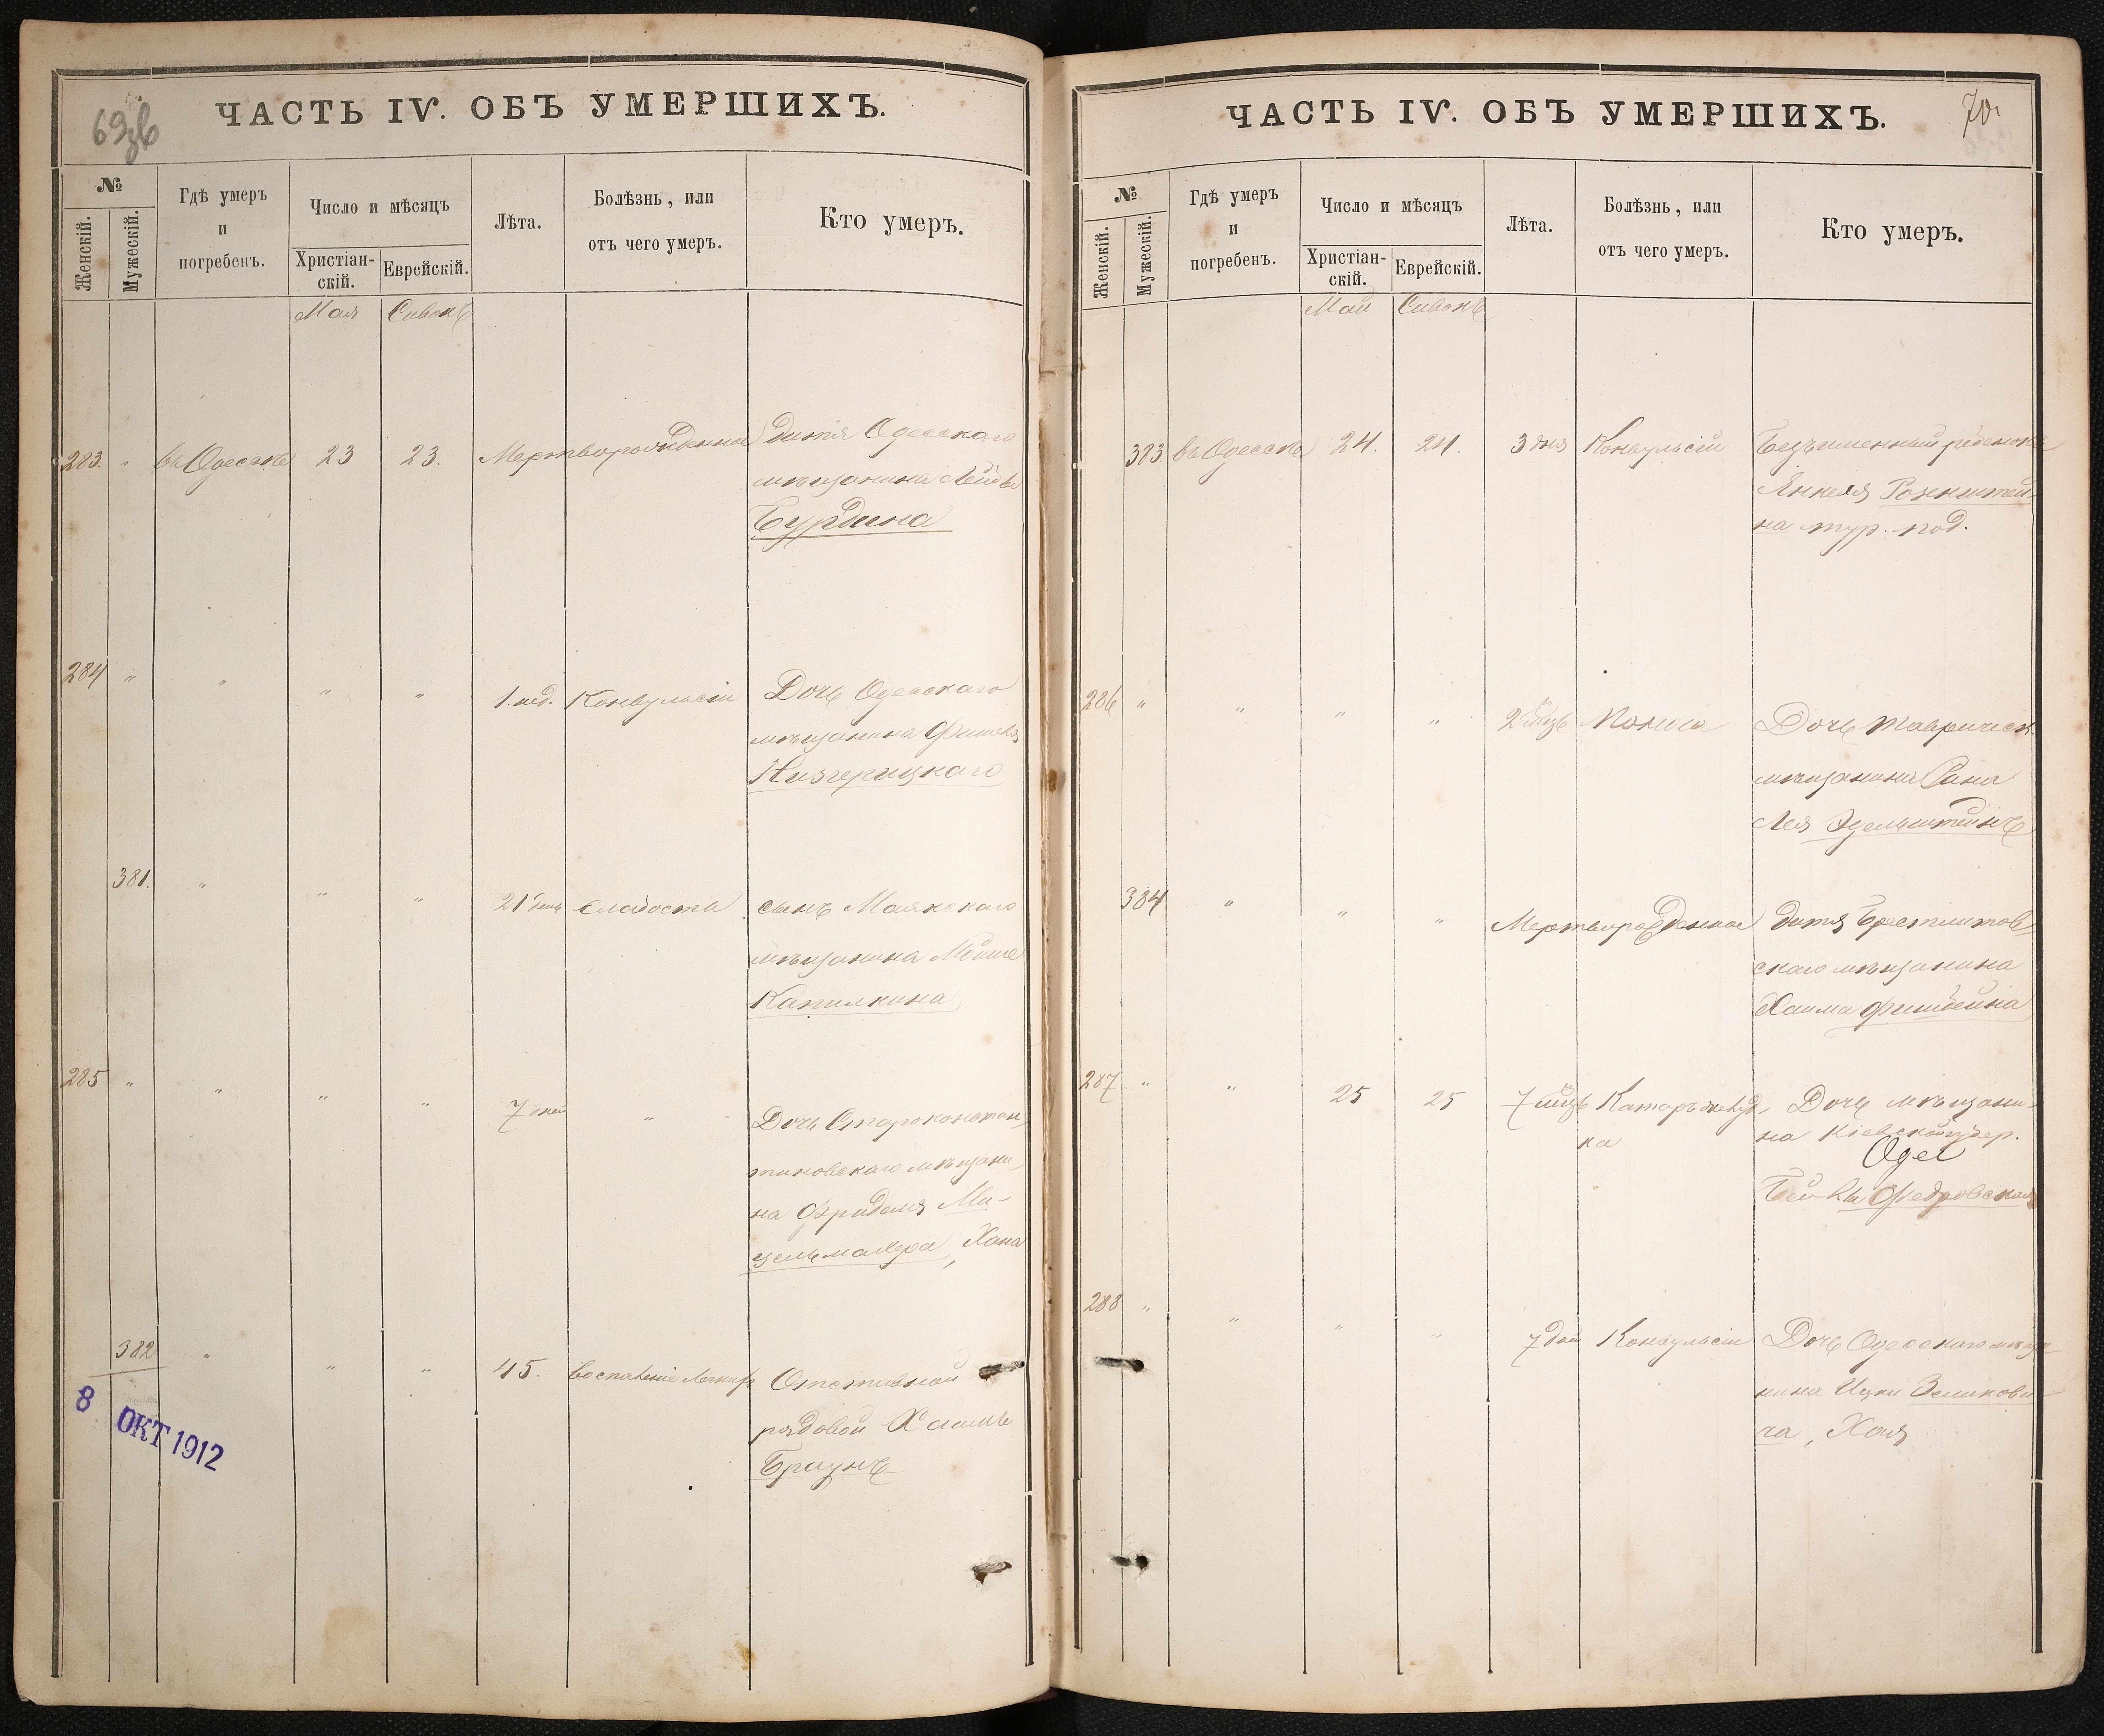 ЧАСТЬ IV. ОБЪ УМЕРШИХЪ.
№
Женскій.
Мужескій.
Гдѣ умеръ
и
погребенъ.
Число и мѣсяцъ
Христіан-
скій.
Еврейскій.
Лѣта.
Болѣзнь, или
отъ чего умеръ.
Кто умеръ.
Мая Сивонъ
283 " въ Одессѣ 23 23. Мертворожденное дитя Одесскаго
мѣщанина Лейбы
Бурдина
284 " " " " 1. нед. Конвульсіи Дочь Одесскаго
мѣщанина Фишеля
381. " " " 21 день Слабость сынъ Маякскаго
мѣщанина Мойше
Капилкина
285 " " " " 7 дней " Дочь Староконстан
тиновскаго мѣщани
на Фриделя Ми-
цельмахера, Хана
382 " " " 45. Воспаленіе Легкихъ Отставной
рядовой Хаимъ
Браунъ
8 ОКТ 1912
ЧАСТЬ IV. ОБЪ УМЕРШИХЪ.
70
№
Женскій.
Мужескій.
Гдѣ умеръ
и
погребенъ.
Число и мѣсяцъ
Христіан-
скій.
Еврейскій.
Лѣта.
Болѣзнь, или
отъ чего умеръ.
Кто умеръ.
Май Сивонъ
383 въ Одессѣ 24. 24. 3 дня Конвульсіи Безъименный ребенокъ
Янкеля Розенштей-
на тур. под.
286 " " " " 2 Поносъ Дочь Тавричск.
мѣщанина
Лея Эдельштейнъ
384 " " " Мертворожденное дитя Брестлитов
скаго мѣщанина
Хаима Фишбейна
287 " " 25 25 7 Катаръ желуд
ка
Дочь мѣщани-
на Кіевской губер.
Федровская
288 " " " " 7 дней Конвульсіи Дочь Одесскаго мѣща
нина Ицки Зеликови
ча, Хая